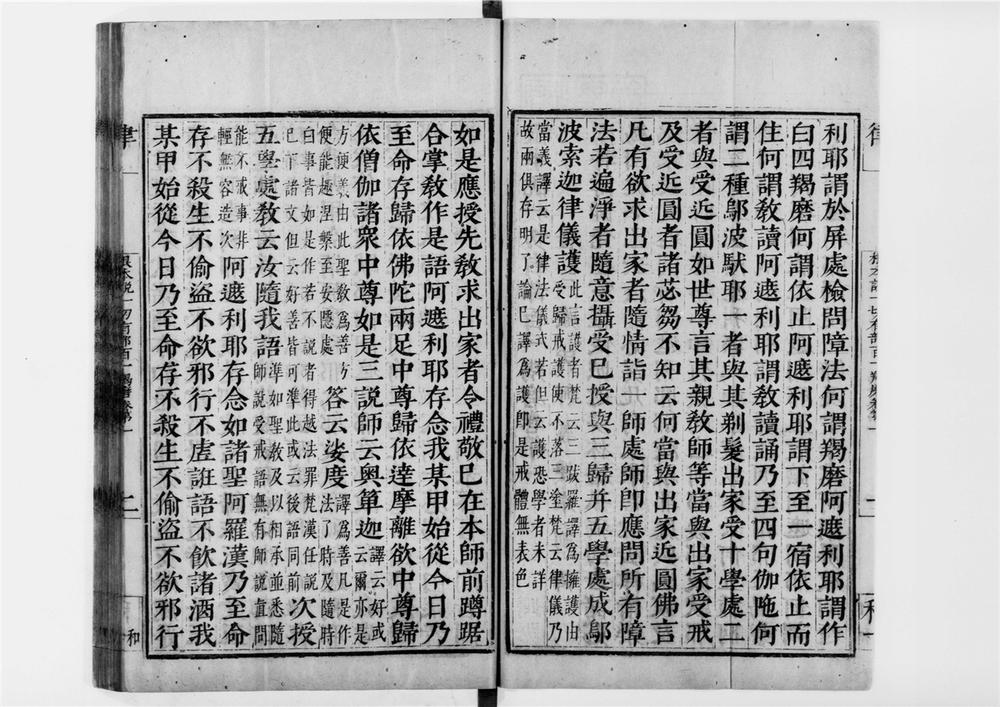 利耶謂於屏處檢問障法何謂羯磨阿遮利耶謂作
白四羯磨何謂依止阿遮利耶謂下至一宿依止而
住何謂教讀阿遮利耶謂教讀誦乃至四句伽陁何
謂二種鄔波馱耶一者與其剃髮出家受十學處二
者與受近圓如世尊言其親教師等當與出家受戒
及受近圓者諸苾芻不知云何當與出家近圓佛言
凡有欲求出家者隨情詣一師處師即應問所有障
法若遍淨者隨意攝受已授與三歸并五學處成鄔
波索迦律儀護此言護者梵云三跋羅譯為擁護由
受歸戒護使不落三塗梵云律儀乃
當義譯云是律法儀式若但云護恐學者未詳
故兩俱存明了論已譯為護即是戒體無表色
如是應授先教求出家者令禮敬已在本師前蹲踞
合掌教作是語阿遮利耶存念我某甲始從今日乃
至命存歸依佛陀兩足中尊歸依達摩離欲中尊歸
依僧伽諸衆中尊如是三說師云奧箄迦譯云好或
云爾亦是
方便義由此聖教為善方
便能趣涅槃至安隱處答云娑度譯為善凡是作
法了時及隨時
白事皆如是作若不說者得越法罪梵漢任說
已下諸文但云好善皆可準此或云後語同前次授
五學處教云汝隨我語準如聖教及以相承並悉隨
師說受戒語無有師說直問
能不戒事非
輕無容造次阿遮利耶存念如諸聖阿羅漢乃至命
存不殺生不偷盜不欲邪行不虛誑語不飲諸酒我
某甲始從今日乃至命存不殺生不偷盜不欲邪行
律
二
和